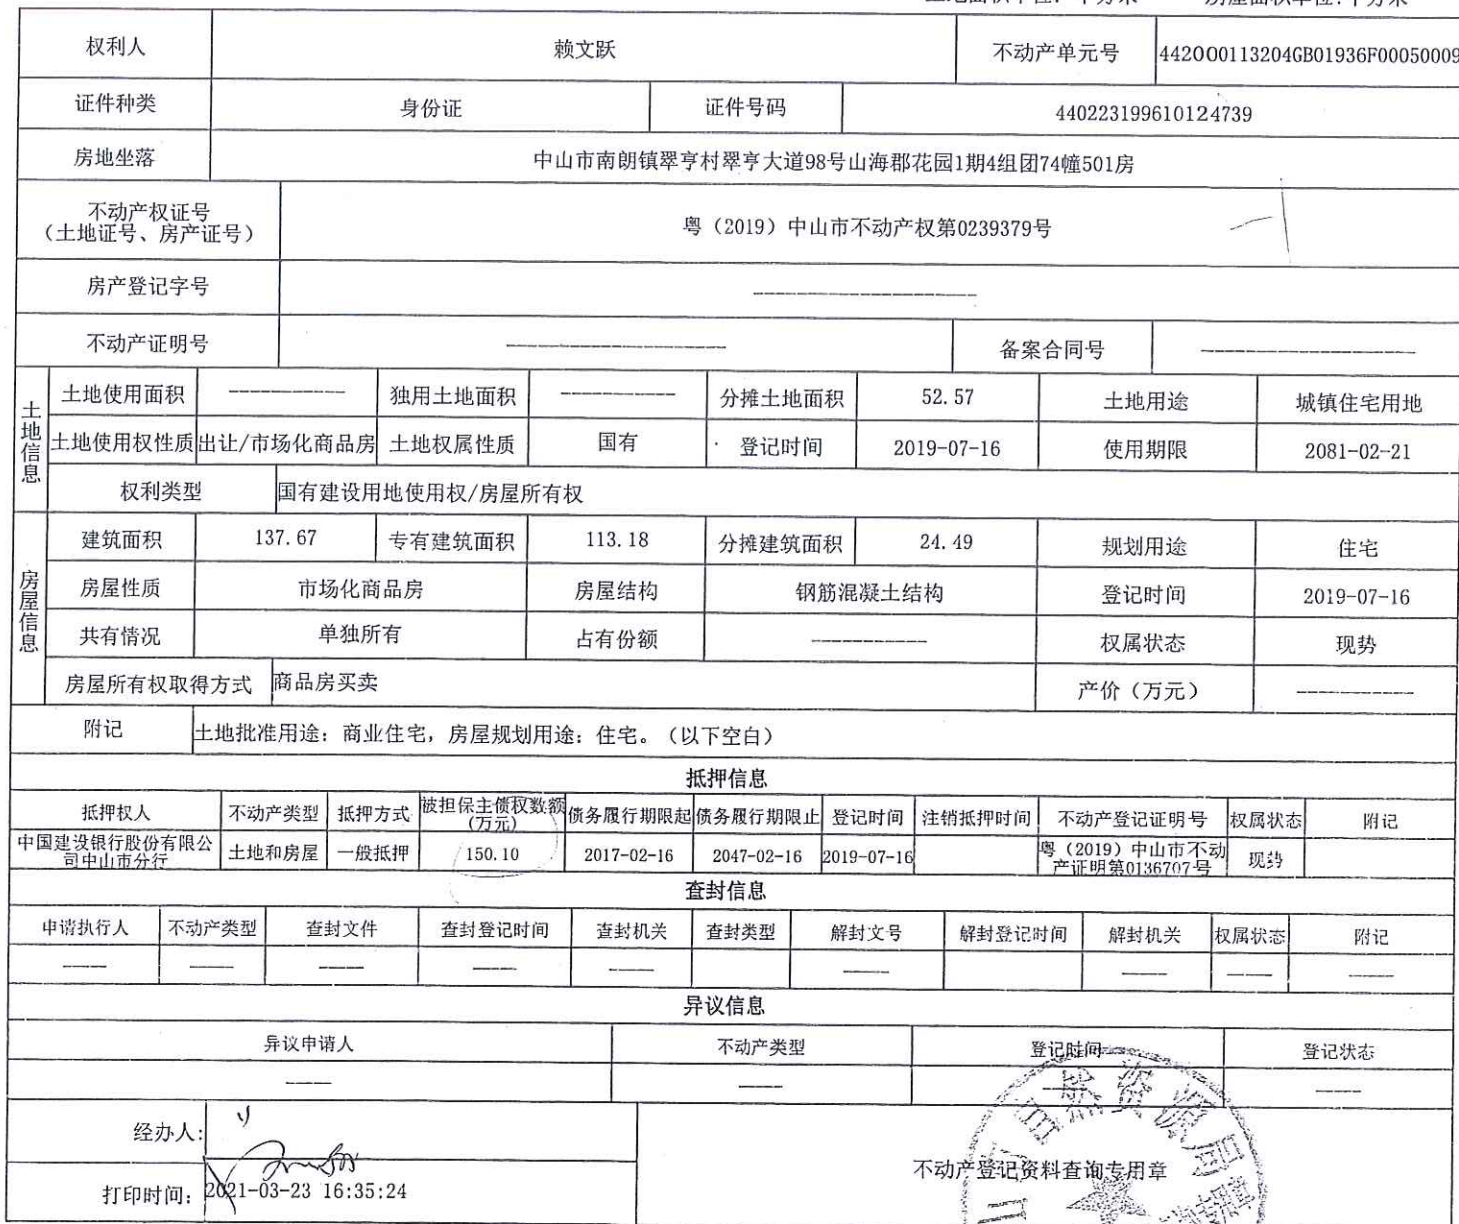 权利人 赖文跃 不动产单元号 442000113204GB01936F00050009
证件种类 身份证 证件号码 440223199610124739
房地坐落 中山市南朗镇翠亨村翠亨大道98号山海郡花园1期4组团74幢501房
不动产权证号
（土地证号、房产证号） 粤（2019）中山市不动产权第0239379号
房产登记字号 ——————————
不动产证明号 —————————— 备案合同号 ——————————
土地信息
土地使用面积 —————— 独用土地面积 —————— 分摊土地面积 52.57 土地用途 城镇住宅用地
土地使用权性质 出让/市场化商品房 土地权属性质 国有 登记时间 2019-07-16 使用期限 2081-02-21
权利类型 国有建设用地使用权/房屋所有权
房屋信息
建筑面积 137.67 专有建筑面积 113.18 分摊建筑面积 24.49 规划用途 住宅
房屋性质 市场化商品房 房屋结构 钢筋混凝土结构 登记时间 2019-07-16
共有情况 单独所有 占有份额 —————— 权属状态 现势
房屋所有权取得方式 商品房买卖 产价（万元） ——————
附记 土地批准用途：商业住宅，房屋规划用途：住宅。（以下空白）
抵押信息
抵押权人 不动产类型 抵押方式 被担保主债权数额（万元） 债务履行期限起 债务履行期限止 登记时间 注销抵押时间 不动产登记证明号 权属状态 附记
中国建设银行股份有限公司中山市分行 土地和房屋 一般抵押 150.10 2017-02-16 2047-02-16 2019-07-16 粤（2019）中山市不动产证明第0136707号 现势
查封信息
申请执行人 不动产类型 查封文件 查封登记时间 查封机关 查封类型 解封文号 解封登记时间 解封机关 权属状态 附记
—— —— —— —— —— —— —— —— ——
异议信息
异议申请人 不动产类型 登记时间 登记状态
—— —— —— ——
经办人:
打印时间: 2021-03-23 16:35:24
不动产登记资料查询专用章